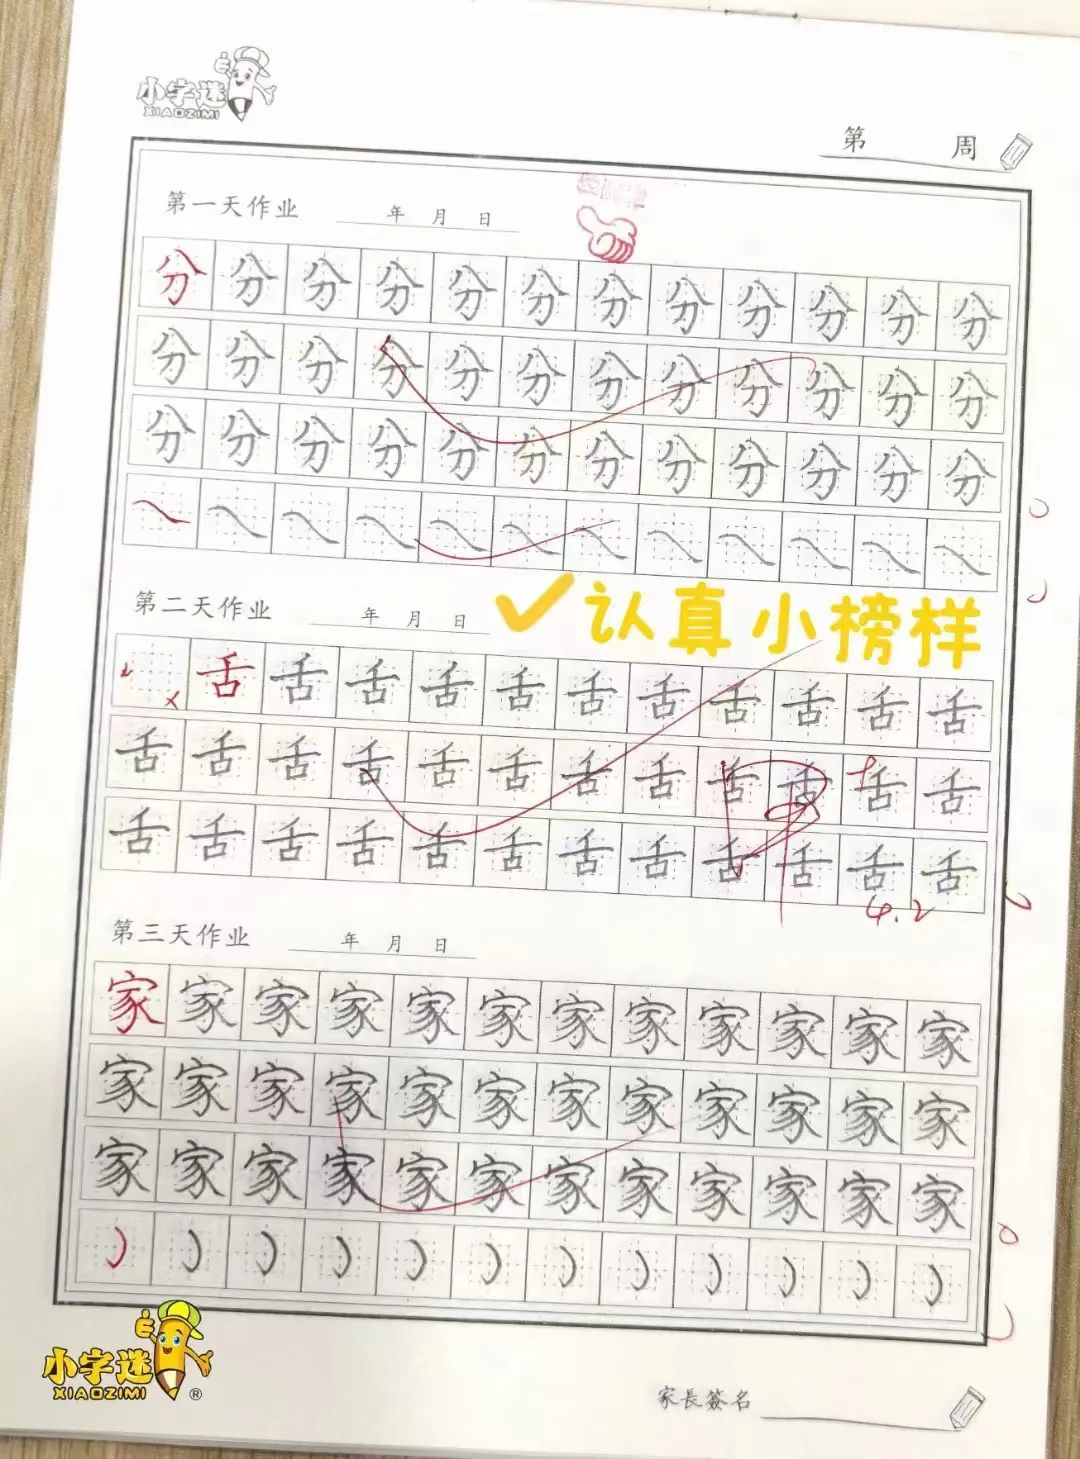 小字迷
XIAOZIMI
第 周
第一天作业 年 月 日
分分分分分分分分分分分分
分分分分分分分分分分分分
分分分分分分分分分分分分
㇏㇏㇏㇏㇏㇏㇏㇏㇏㇏㇏㇏
第二天作业 年 月 日
认真小榜样
舌舌舌舌舌舌舌舌舌舌舌
舌舌舌舌舌舌舌舌舌舌舌舌
舌舌舌舌舌舌舌舌舌舌舌舌
4.2
第三天作业 年 月 日
家家家家家家家家家家家家
家家家家家家家家家家家家
家家家家家家家家家家家家
小字迷
XIAOZIMI®
家長簽名